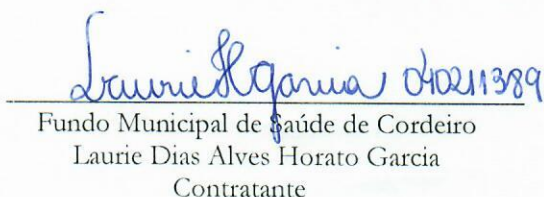 Laurie H Garcia 040211389
Fundo Municipal de Saúde de Cordeiro
Laurie Dias Alves Horato Garcia
Contratante